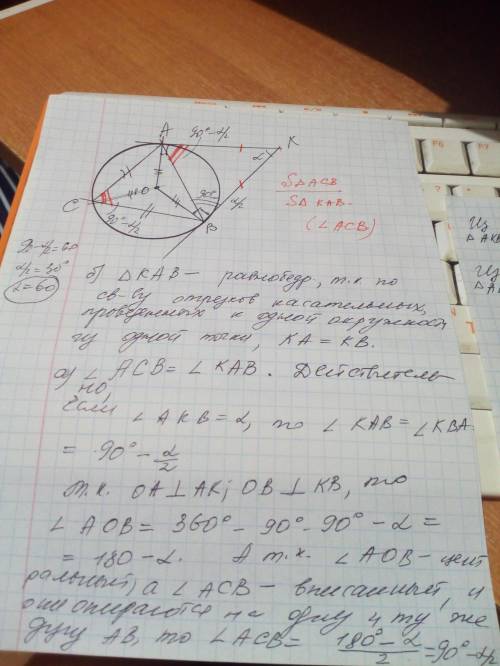 A
90°-α/2
K
α
O
90°
α/2
C
90°-α/2
B
S△ACB
S△KAB
(∠ACB)
90-α/2=60
α/2=30°
α=60
б) △KAB — равнобедр, т.к. по
св-ву отрезков касательных,
проведенных к одной окружности
из одной точки, KA = KB.
а) ∠ACB = ∠KAB. Действитель
но,
если ∠AKB = α, то ∠KAB = ∠KBA =
= 90° - α/2
т.к. OA ⊥ AK; OB ⊥ KB, то
∠AOB = 360° - 90° - 90° - α =
= 180 - α. А т.к. ∠AOB - цент
ральный, а ∠ACB - вписанный, и
они опираются на одну и ту же
дугу AB, то ∠ACB = 180° - α / 2 = 90° - α/2
Из
△AKB
Из